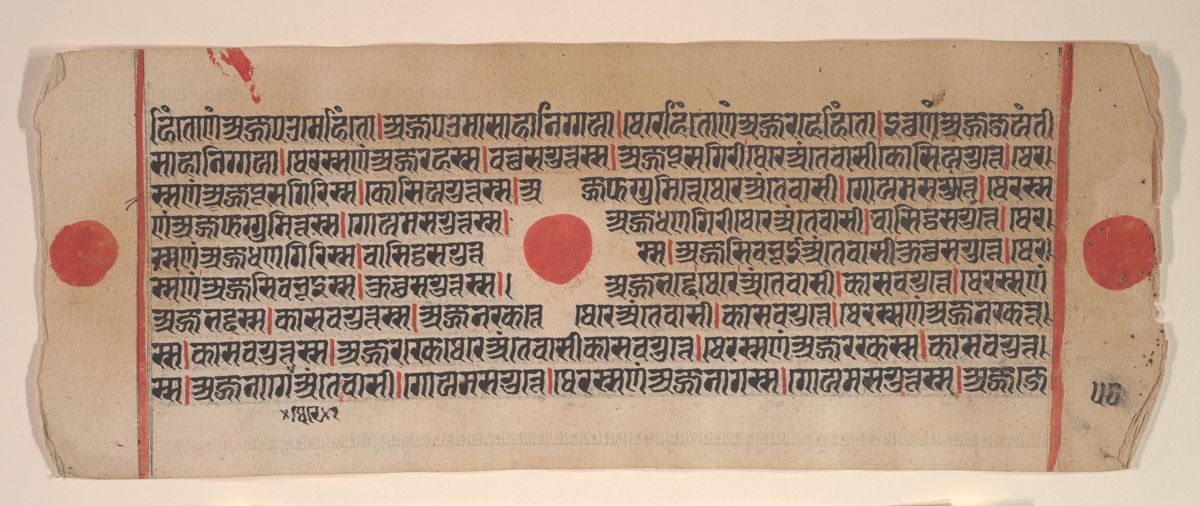 हिंतोणं अज्जपउमेहिंतो। अज्जपउमा साहा निग्गया। थेरेहिंतोणं अज्जरहेहिंतो। इत्थणं अज्जजयंती
साहा निग्गया। थेरस्सणं अज्जरहस्स। वच्छसगुत्तस्स। अज्जपूसगिरी थेरे अंतेवासी। कोसियगुत्ते। थेर
स्सणं अज्जपूसगिरिस्स। कोसियगुत्तस्स। अज्जफग्गुमित्ते थेरे अंतेवासी। गोयमसगुत्ते। थेरस्स
णं अज्जफग्गुमित्तस्स। गोयमसगुत्तस्स। अज्जधणगिरी थेरे अंतेवासी। वासिट्ठसगुत्ते। थेर
स्सणं अज्जधणगिरिस्स। वासिट्ठसगुत्तस्स। अज्जसिवभूई अंतेवासी कुच्छसगुत्ते। थेर
स्सणं अज्जसिवभूइस्स। कुच्छसगुत्तस्स॥ अज्जभद्दे थेरे अंतेवासी। कासवगुत्ते। थेरस्सणं
अज्जभद्दस्स। कासवगुत्तस्स। अज्जनरकत्ते थेरे अंतेवासी। कासवगुत्ते। थेरस्सणं अज्जनरकत्त
स्स। कासवगुत्तस्स। अज्जररके थेरे अंतेवासी कासवगुत्ते। थेरस्सणं अज्जररकस्स। कासवगुत्त
स्स। अज्जनागे अंतेवासी। गोयमसगुत्ते। थेरस्सणं अज्जनागस्स। गोयमसगुत्तस्स। अज्जजे
थेरे